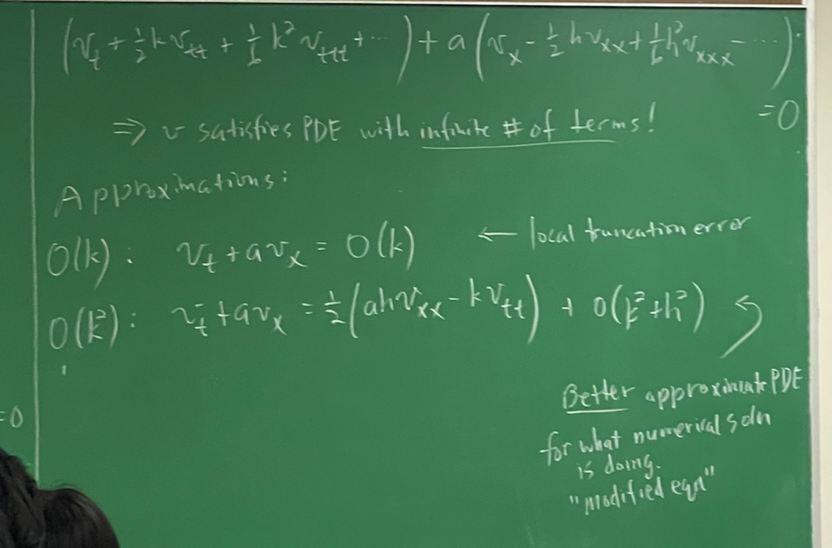 (v_t + ½kv_tt + ⅙k²v_ttt + ⋯) + a(v_x - ½hv_xx + ⅙h²v_xxx - ⋯)
= 0
⇒ v satisfies PDE with infinite # of terms!
Approximations:
O(k): v_t + av_x = O(k) ← local truncation error
O(k²): v_t + av_x = ½(ahv_xx - kv_tt) + O(k²+h²)
Better approximate PDE
for what numerical soln
is doing.
"modified eqn"
=0